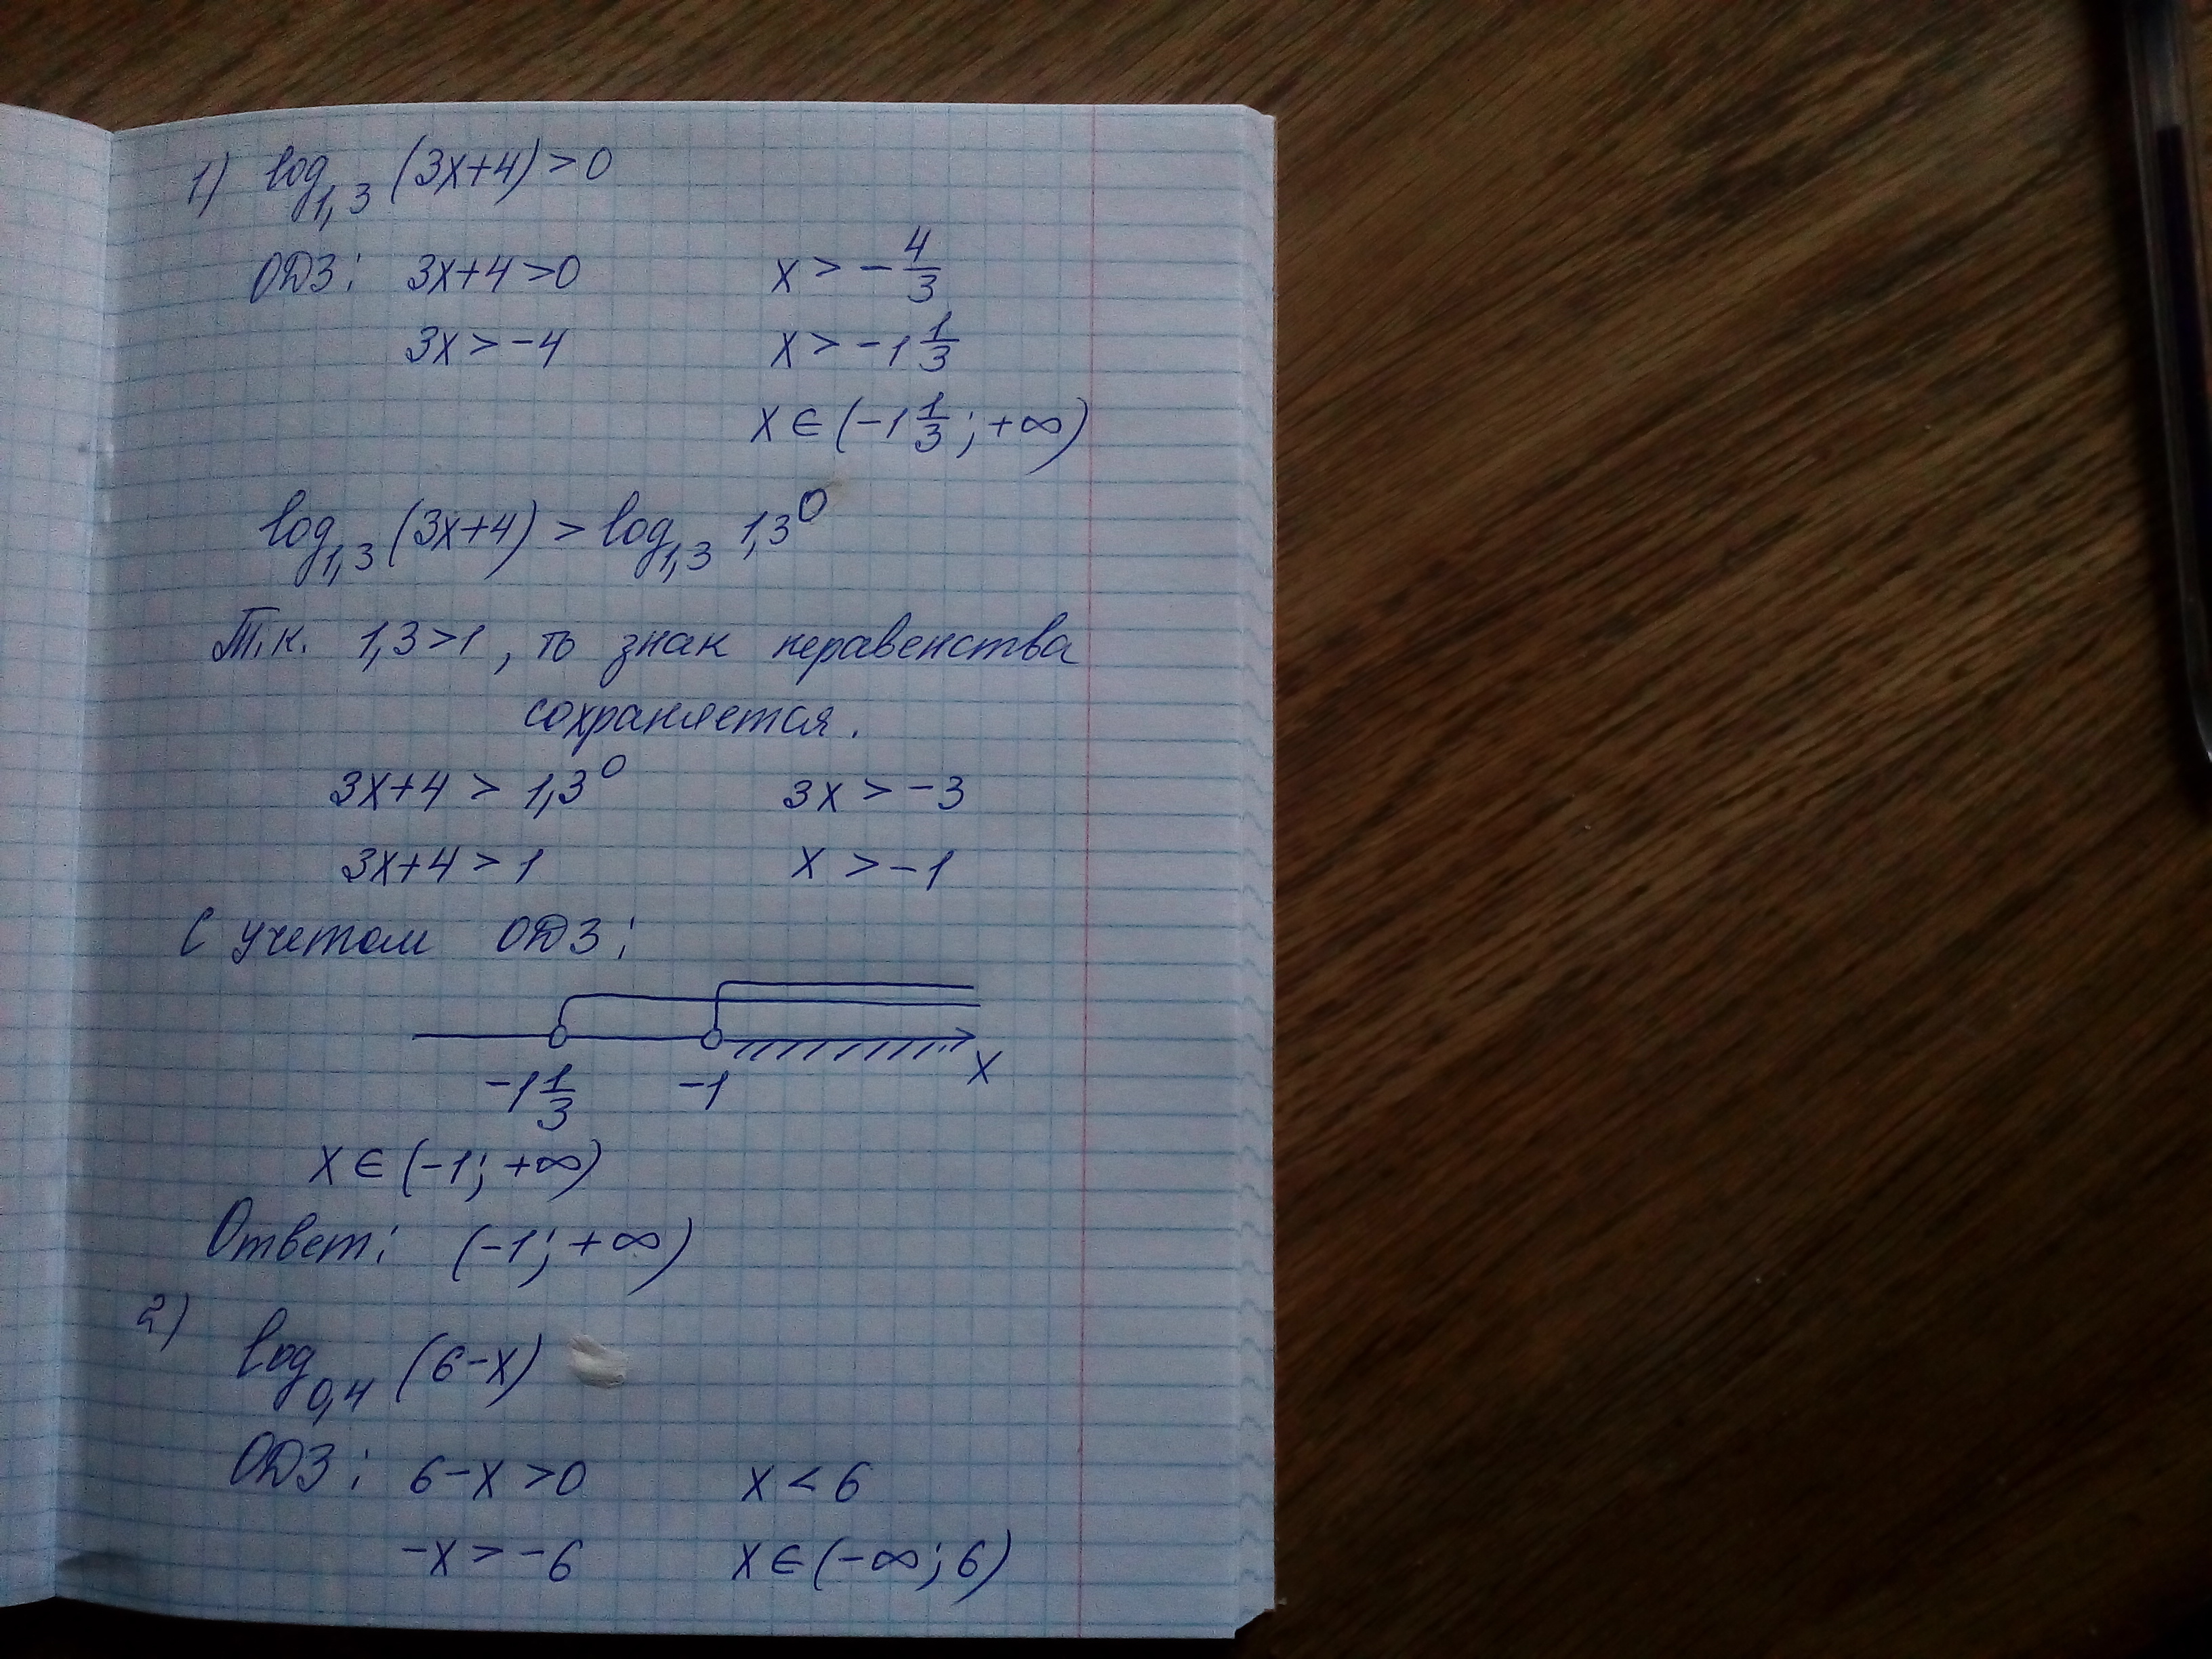 1) log₁,₃ (3x+4) > 0
ОДЗ: 3x+4 > 0    x > -4/3
3x > -4    x > -1 1/3
x ∈ (-1 1/3; +∞)
log₁,₃ (3x+4) > log₁,₃ 1,3⁰
Т.к. 1,3 > 1, то знак неравенства
сохраняется.
3x+4 > 1,3⁰    3x > -3
3x+4 > 1    x > -1
С учетом ОДЗ:
-1 1/3    -1    x
x ∈ (-1; +∞)
Ответ: (-1; +∞)
2)
log₀,₄ (6-x)
ОДЗ: 6-x > 0    x < 6
-x > -6    x ∈ (-∞; 6)